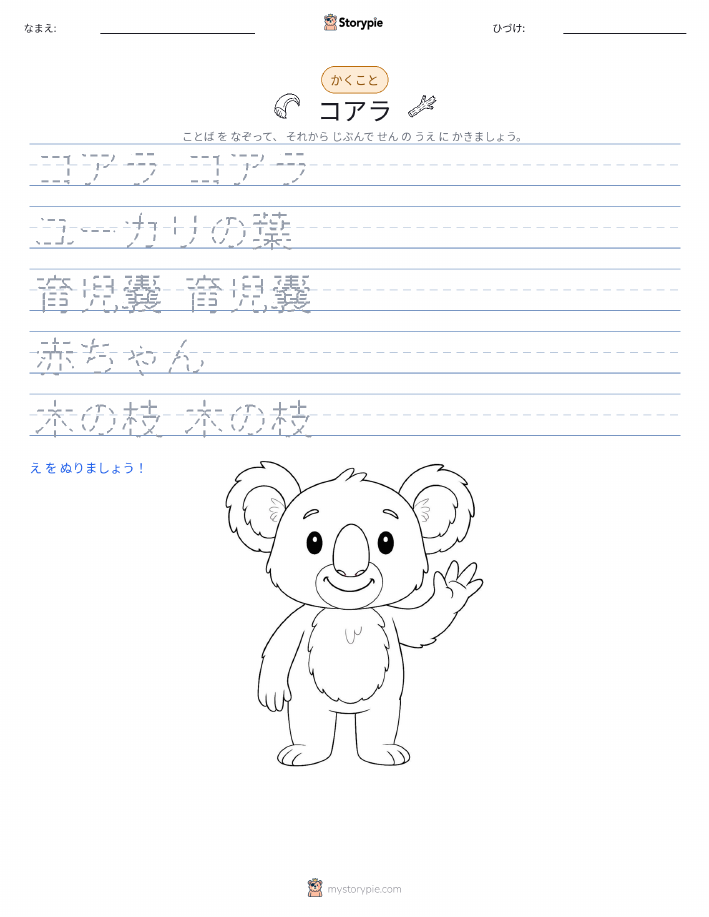 なまえ:
Storypie
ひづけ:
かくこと
コアラ
ことば を なぞって、 それから じぶんで せん の うえ に かきましょう。
コアラ コアラ
ユーカリの葉
育児嚢 育児嚢
赤ちゃん
木の枝 木の枝
え を ぬりましょう！
mystorypie.com